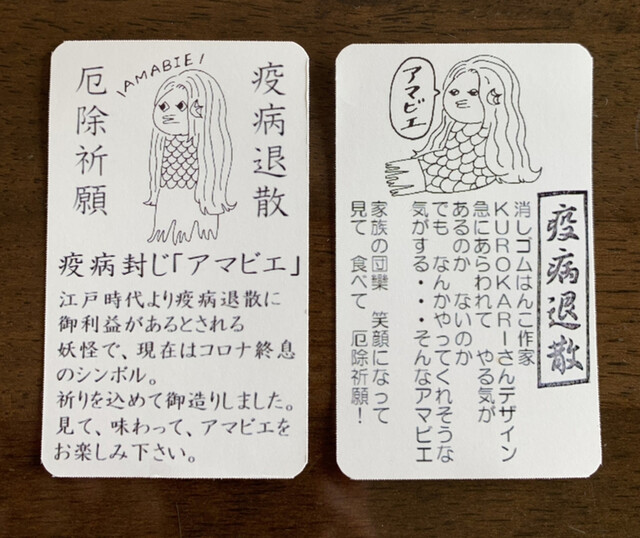 疫病退散
AMABIE
厄除祈願
疫病封じ「アマビエ」
江戸時代より疫病退散に
御利益があるとされる
妖怪で、現在はコロナ終息
のシンボル。
祈りを込めて御造りしました。
見て、味わって、アマビエを
お楽しみ下さい。
アマビエ
疫病退散
消しゴムはんこ作家
KUROKARIーさんデザイン
急にあらわれて やる気が
あるのか ないのか
でも なんかやってくれそうな
気がする・・・そんなアマビエ
家族の団欒 笑顔になって
見て 食べて 厄除祈願!